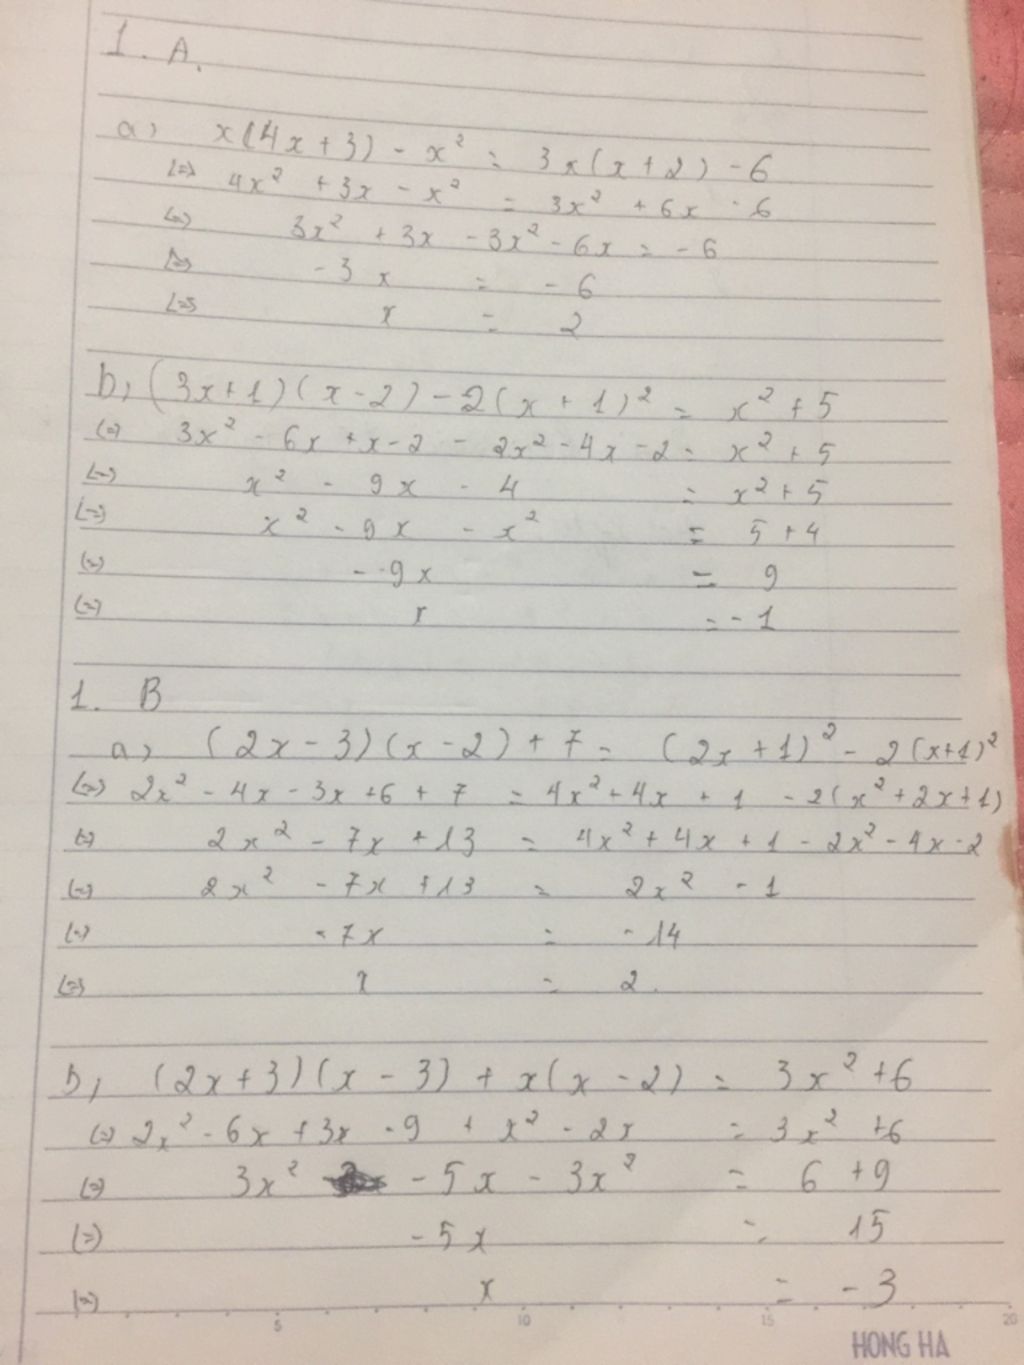 1. A.
a, x(4x+3) - x² = 3x(x+2) - 6
<=> 4x² + 3x - x² = 3x² + 6x - 6
<=> 3x² + 3x - 3x² - 6x = -6
<=> -3x = -6
<=> x = 2
b, (3x+1)(x-2) - 2(x+1)² = x² + 5
<=> 3x² - 6x + x - 2 - 2x² - 4x - 2 = x² + 5
<=> x² - 9x - 4 = x² + 5
<=> x² - 9x - x² = 5 + 4
<=> -9x = 9
<=> x = -1
1. B
a, (2x-3)(x-2) + 7 = (2x+1)² - 2(x+1)²
<=> 2x² - 4x - 3x + 6 + 7 = 4x² + 4x + 1 - 2(x² + 2x + 1)
<=> 2x² - 7x + 13 = 4x² + 4x + 1 - 2x² - 4x - 2
<=> 2x² - 7x + 13 = 2x² - 1
<=> -7x = -14
<=> x = 2.
b, (2x+3)(x-3) + x(x-2) = 3x² + 6
<=> 2x² - 6x + 3x - 9 + x² - 2x = 3x² + 6
<=> 3x² - 5x - 3x² = 6 + 9
<=> -5x = 15
<=> x = -3
5 10 15 20
HONG HA